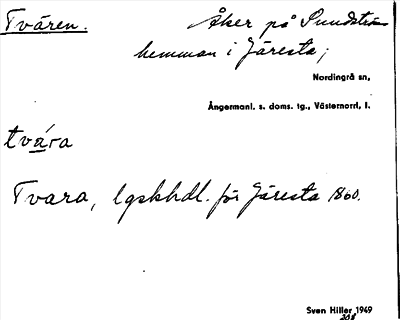 Tvären.
Åker på Sundströms
hemman i Järesta;
Nordingrå sn,
Ångermanl. s. doms. tg., Västernorrl. l.
tvára
Tvara, lgskhdl. för Järesta 1860.
Sven Hiller 1949